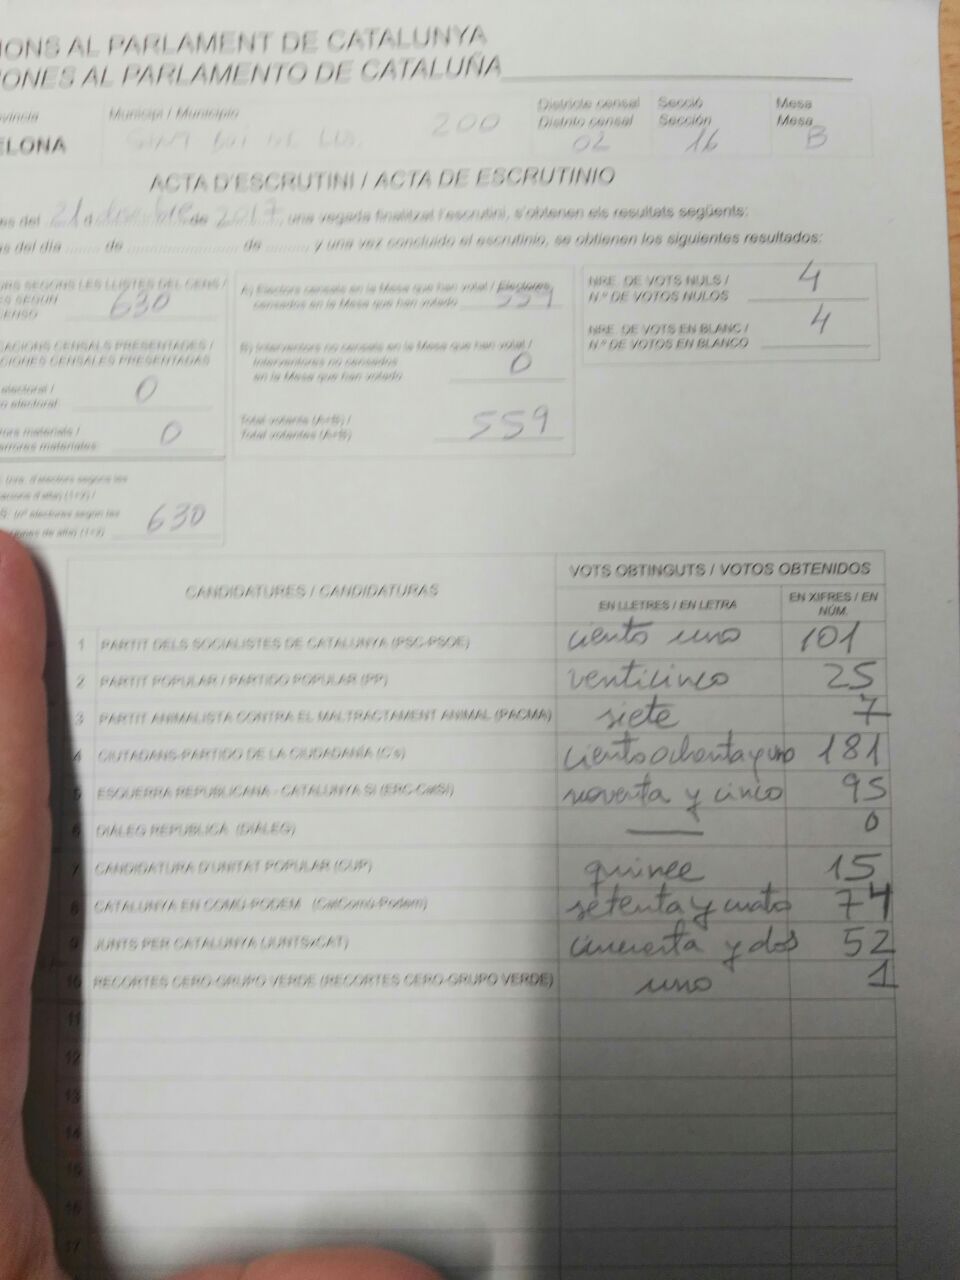 IONS AL PARLAMENT DE CATALUNYA
IONES AL PARLAMENTO DE CATALUÑA
ovíncia Municipi / Municipio Districte censal Secció Mesa
Distrito censal Sección Mesa
ELONA SANT BOI DE LLO. 200 02 16 B
ACTA D'ESCRUTINI / ACTA DE ESCRUTINIO
es del 21 d de 2017, una vegada finalitzat l'escrutini, s'obtenen els resultats següents:
s del día ...... de ........................ de ........ y una vez concluido el escrutinio, se obtienen los siguientes resultados:
ONS SEGONS LES LLISTES DEL CENS /
S SEGÚN
ENSO 630
ACIONS CENSALS PRESENTADES /
CIONES CENSALES PRESENTADAS
electoral /
o electoral 0
rors materials /
errores materiales 0
630
A) Electors censats en la Mesa que han votat / Electores
censados en la Mesa que han votado 559
B) Interventors no censats en la Mesa que han votat /
Interventores no censados
en la Mesa que han votado 0
Total votants (A+B) /
Total votantes (A+B) 559
NRE. DE VOTS NULS /
N.º DE VOTOS NULOS 4
NRE. DE VOTS EN BLANC /
N.º DE VOTOS EN BLANCO 4
CANDIDATURES / CANDIDATURAS VOTS OBTINGUTS / VOTOS OBTENIDOS
EN LLETRES / EN LETRA EN XIFRES / EN NÚM.
1 PARTIT DELS SOCIALISTES DE CATALUNYA (PSC-PSOE) ciento uno 101
2 PARTIT POPULAR / PARTIDO POPULAR (PP) venticinco 25
3 PARTIT ANIMALISTA CONTRA EL MALTRACTAMENT ANIMAL (PACMA) siete 7
4 CIUTADANS-PARTIDO DE LA CIUDADANÍA (C's) ciento ochenta y uno 181
5 ESQUERRA REPUBLICANA - CATALUNYA SÍ (ERC-CatSí) noventa y cinco 95
6 DIÀLEG REPÚBLICA (DIÀLEG) — 0
7 CANDIDATURA D'UNITAT POPULAR (CUP) quince 15
8 CATALUNYA EN COMÚ-PODEM (CatComú-Podem) setenta y cuatro 74
9 JUNTS PER CATALUNYA (JUNTSxCAT) cincuenta y dos 52
10 RECORTES CERO-GRUPO VERDE (RECORTES CERO-GRUPO VERDE) uno 1
11
12
13
14
15
16
17